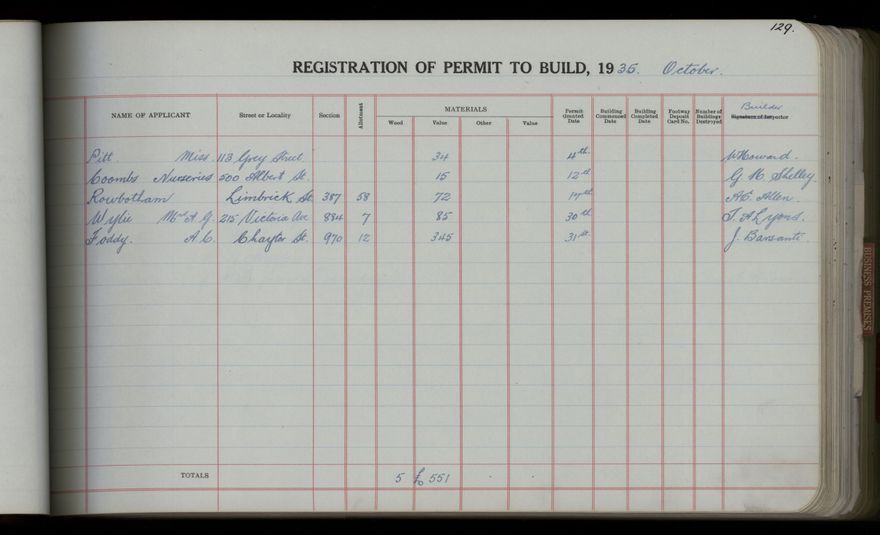 129.
REGISTRATION OF PERMIT TO BUILD, 1935. October.
NAME OF APPLICANT Street or Locality Section Allotment MATERIALS Wood Value Other Value Permit Granted Date Building Commenced Date Building Completed Date Footway Deposit Card No. Number of Buildings Destroyed Builder Signature of Inspector
Pitt. Miss. 113 Grey Street. 34 4th. W Howard.
Coombs Nurseries 500 Albert St. 15 12th G H Shelley.
Rowbotham Limbrick St. 387 58 72 17th A.C. Allen.
Wylie Mrs A. G. 215 Victoria Ave 884 7 85 30th T. A Lyons.
Foddy. A. C. Chaytor St. 970 12 345 31st. J. Barsanti.
TOTALS 5 £ 551 . .
BUSINESS PREMISES